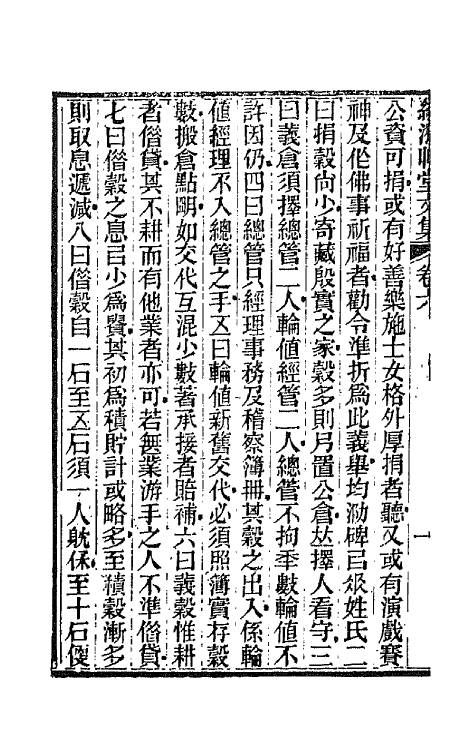 公貲可捐或有好善樂施士女格外厚捐者聽又或有演戲賽
神及作佛事祈福者勸令準折爲此義舉均泐碑㠯紀姓氏二
曰捐穀尙少寄藏殷實之家穀多則另置公倉並擇人看守三
曰義倉須擇總管二人輪值經管二人總管不拘季數輪值不
許因仍四曰總管只經理事務及稽察簿冊其穀之出入係輪
值經理不入總管之手五曰輪值新舊交代必須照簿實存穀
數搬倉點明如交代互混少數著承接者賠補六曰義穀惟耕
者借貸其不耕而有他業者亦可若無業游手之人不準借貸
七曰借穀之息㠯少爲貴其初爲積貯計或略多至積穀漸多
則取息遞減八曰借穀自一石至五石須一人貺保至十石復
堂文集 卷六